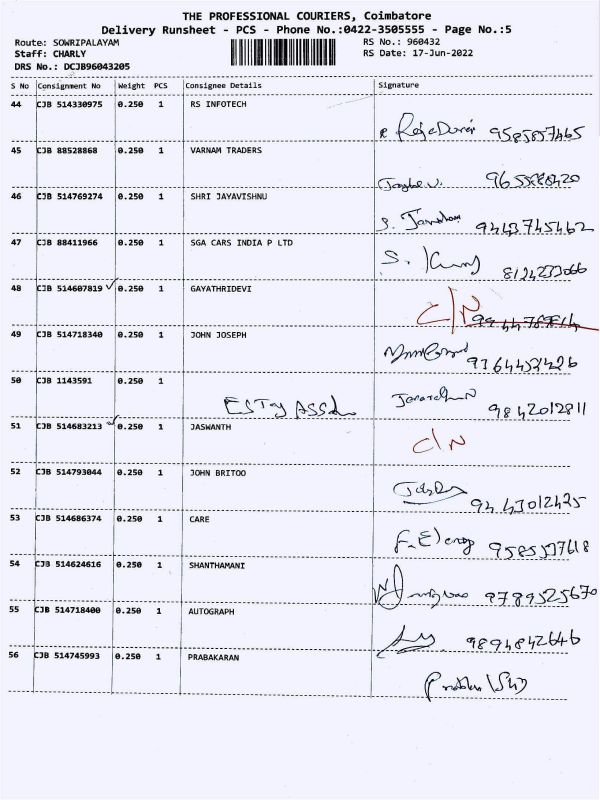 THE PROFESSIONAL COURIERS, Coimbatore
Delivery Runsheet - PCS - Phone No.:0422-3505555 - Page No.:5
Route: SOWRIPALAYAM RS No.: 960432
Staff: CHARLY RS Date: 17-Jun-2022
DRS No.: DCJB96043205
S No Consignment No Weight PCS Consignee Details Signature
44 CJB 514330975 0.250 1 RS INFOTECH
9585857465
45 CJB 88528868 0.250 1 VARNAM TRADERS
46 CJB 514769274 0.250 1 SHRI JAYAVISHNU
9443745462
47 CJB 88411966 0.250 1 SGA CARS INDIA P LTD
S. 8124233066
48 CJB 514607819 0.250 1 GAYATHRIDEVI
C/N
49 CJB 514718340 0.250 1 JOHN JOSEPH
50 CJB 1143591 0.250 1
9842012811
51 CJB 514683213 0.250 1 JASWANTH
C/N
52 CJB 514793044 0.250 1 JOHN BRITOO
9443012425
53 CJB 514686374 0.250 1 CARE
9585537618
54 CJB 514624616 0.250 1 SHANTHAMANI
9789525670
55 CJB 514718400 0.250 1 AUTOGRAPH
9894842646
56 CJB 514745993 0.250 1 PRABAKARAN